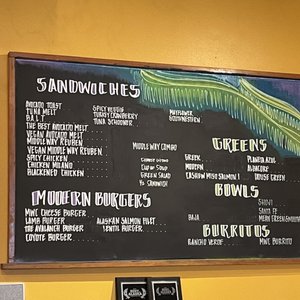 SANDWICHES
AVOCADO TOAST
TUNA MELT
B.A.L.T.
THE BEST AVOCADO MELT
VEGAN AVOCADO MELT
MIDDLEWAY REUBEN
VEGAN MIDDLEWAY REUBEN
SPICY CHICKEN
CHICKEN MILANO
BLACKENED CHICKEN
TURKEY CRANBERRY
TUNA SCHOONER
MAYFLOWER
MIDDLE WAY COMBO
CUP OF SOUP
GREEN SALAD
1/2 SANDWICH
GREENS
GREEK
MODERN
CASHEW MISO SALMON
PLANETA AZUL
ALBACORE
HOUSE GREEN
BOWLS
BAJA
SANTA FE
MEAN GREEN
MODERN BURGERS
MWC CHEESE BURGER
LAMB BURGER
THE AVALANCH BURGER
COYOTE BURGER
ALASKAN SALMON FILET
LENTIL BURGER
BURRITOS
RANCHO VERDE
MWC BURRITO